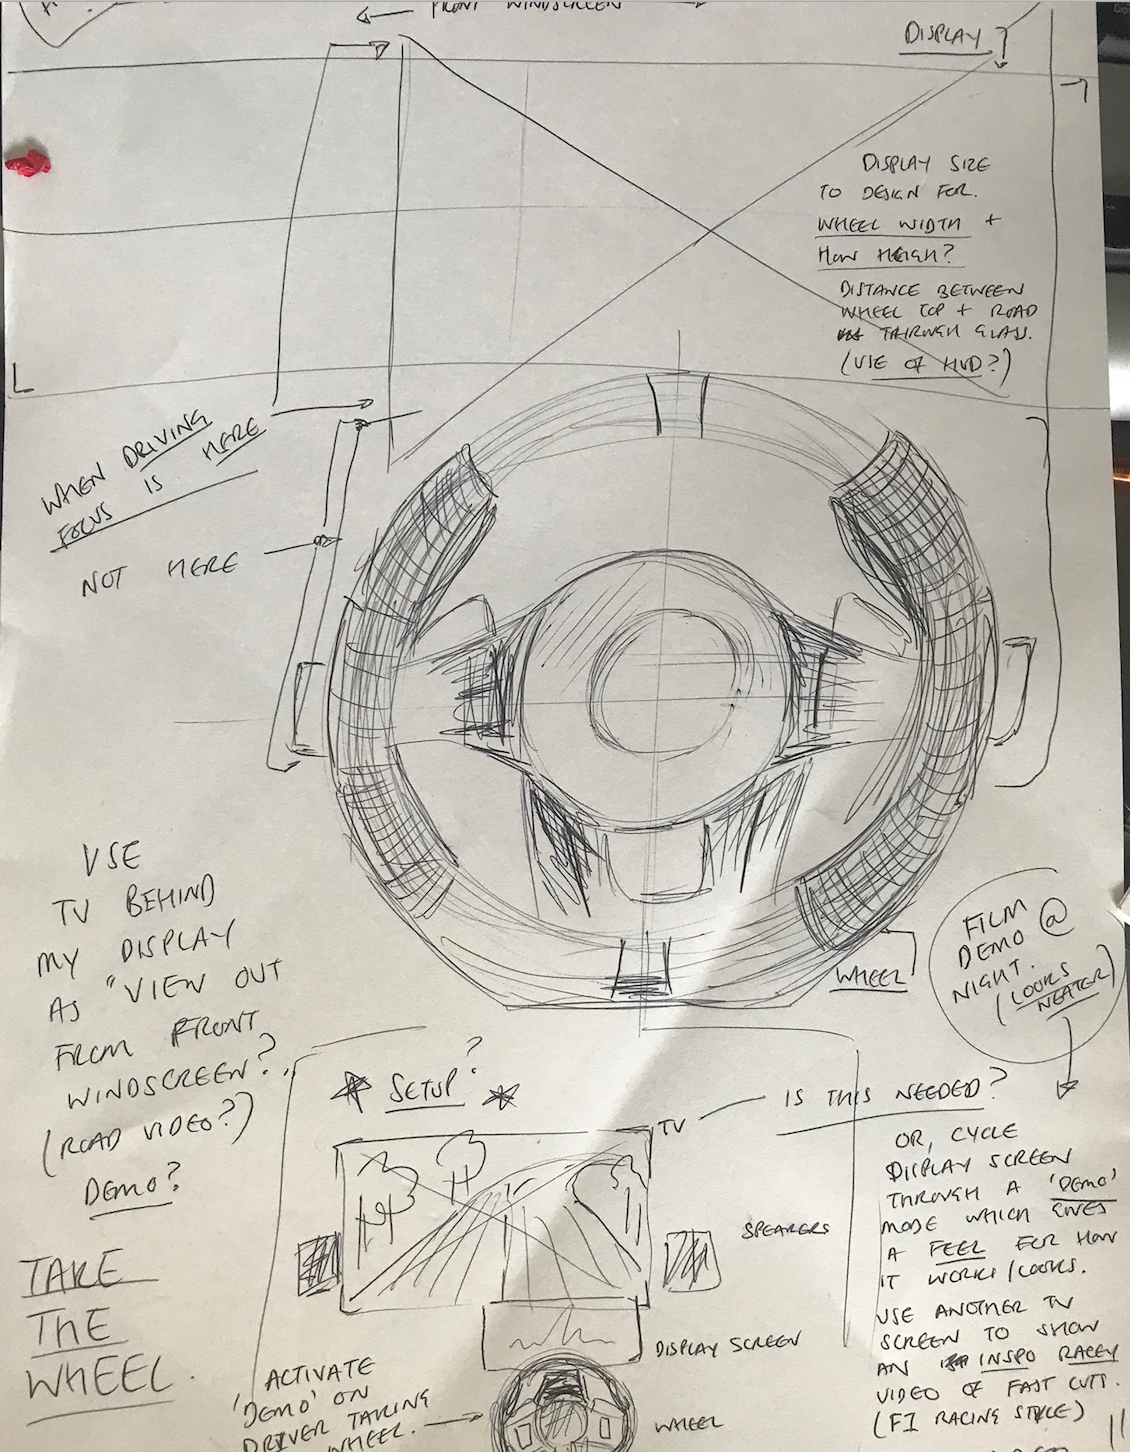 FRONT WINDSCREEN
DISPLAY
DISPLAY SIZE
TO DESIGN FOR.
WHEEL WIDTH +
HOW HEIGH?
DISTANCE BETWEEN
WHEEL TOP + ROAD
THROUGH GLASS.
(USE OF HUD?)
WHEN DRIVING
FOCUS IS HERE
NOT HERE
USE
TV BEHIND
MY DISPLAY
AS "VIEW OUT
FROM FRONT
WINDSCREEN?
(ROAD VIDEO?)
DEMO?
TAKE
THE
WHEEL.
WHEEL
FILM
DEMO @
NIGHT.
(LOOKS
NEATER)
SETUP?
TV
IS THIS NEEDED?
OR, CYCLE
DISPLAY SCREEN
THROUGH A 'DEMO'
MODE WHICH GIVES
A FEEL FOR HOW
IT WORKS/LOOKS.
USE ANOTHER TV
SCREEN TO SHOW
AN INSPO RACEY
VIDEO OF FAST CUTS.
(F1 RACING STYLE)
SPEAKERS
DISPLAY SCREEN
WHEEL
ACTIVATE
'DEMO' ON
DRIVER TAKING
WHEEL.